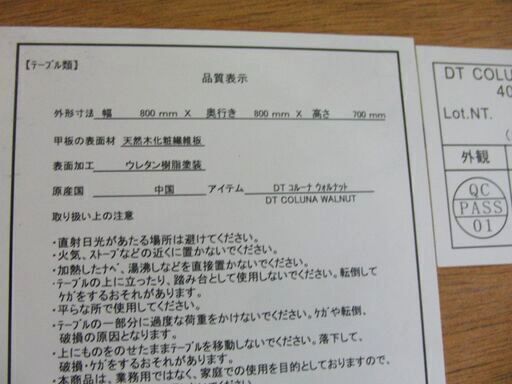 【テーブル類】
品質表示
外形寸法 幅 800 mm X 奥行き 800 mm X 高さ 700 mm
甲板の表面材 天然木化粧繊維板
表面加工 ウレタン樹脂塗装
原産国 中国 アイテム DT コルーナ ウォルナット
DT COLUNA WALNUT
取り扱い上の注意
・直射日光があたる場所は避けてください。
・火気、ストーブなどの近くに置かないでください。
・加熱したナベ、湯沸しなどを直接置かないでください。
・テーブルの上に立ったり、踏み台として使用しないでください。転倒して
ケガをするおそれがあります。
・平らな所で使用してください。
・テーブルの一部分に過度な荷重をかけないでください。ケガや転倒、
破損の原因となります。
・上にものをのせたままテーブルを移動しないでください。落下して、
破損・ケガをするおそれがあります。
・本商品は、業務用ではなく、家庭での使用を目的としておりますので、
DT COLU
40
Lot.NT.
(
外観
QC
PASS
01